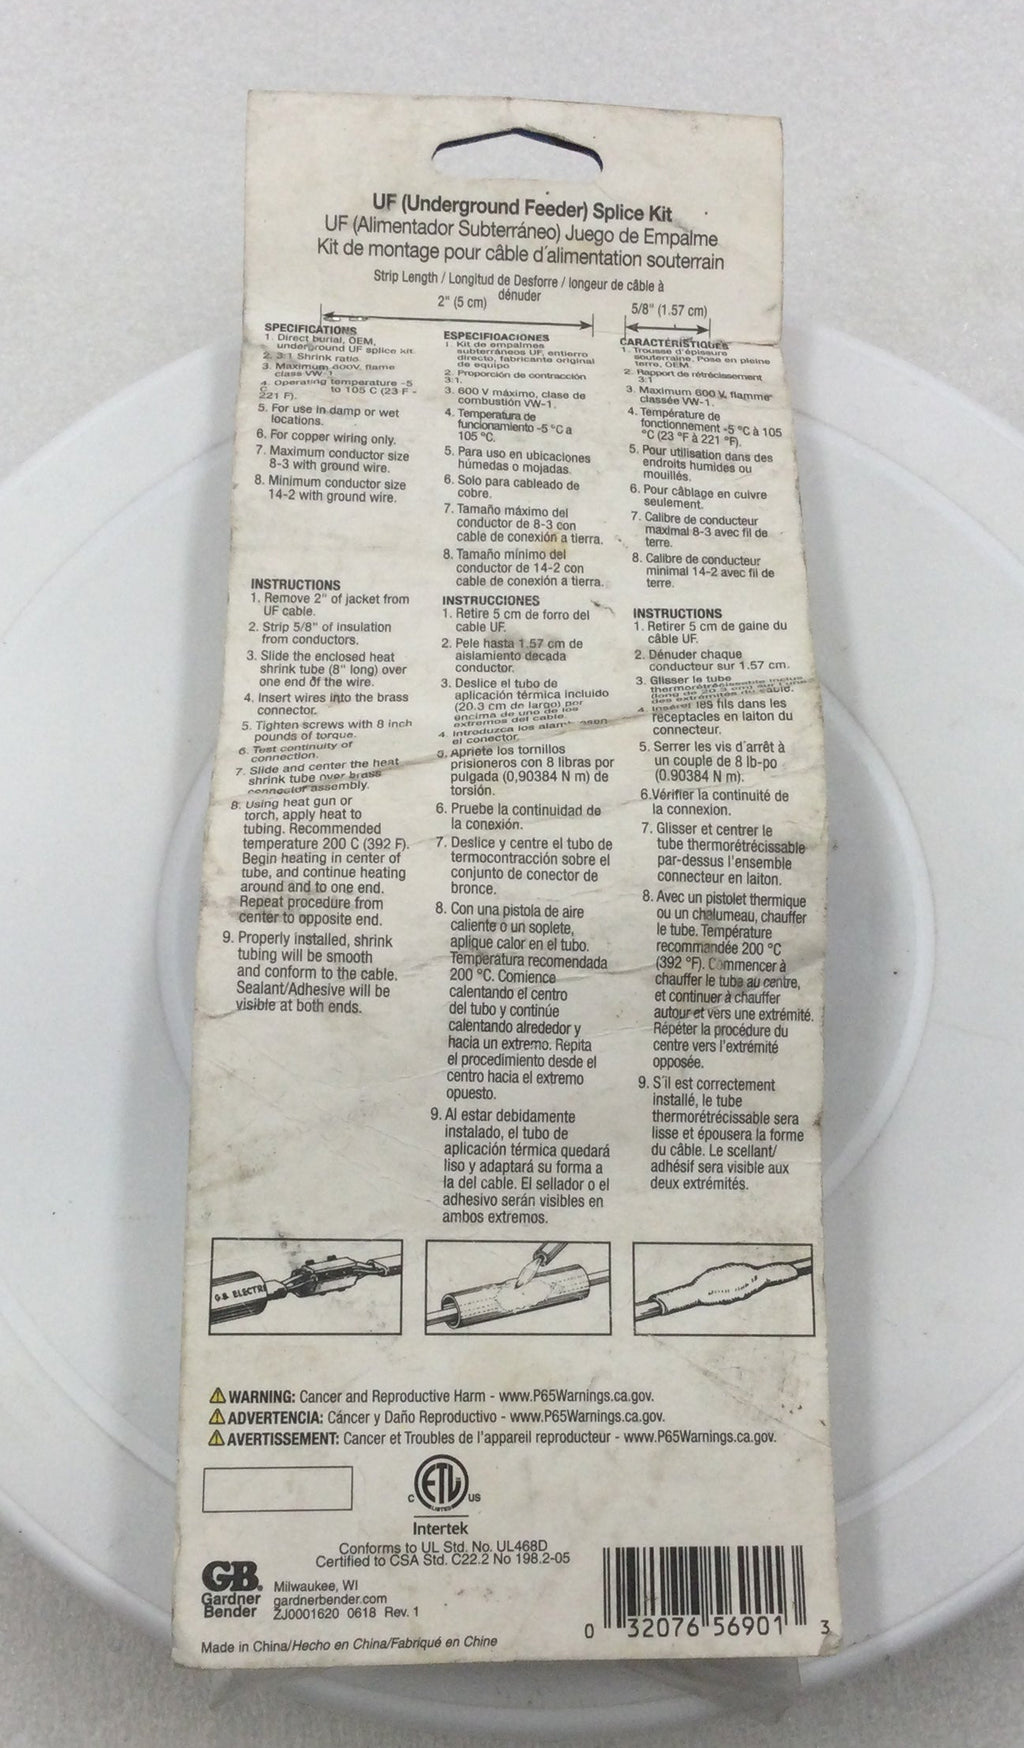 UF (Underground Feeder) Splice Kit
UF (Alimentador Subterráneo) Juego de Empalme
Kit de montage pour câble d´alimentation souterrain
Strip Length / Longitud de Desforre / longeur de câble à
dénuder
2" (5 cm)
5/8" (1.57 cm)
SPECIFICATIONS
1. Direct burial, OEM,
underground UF splice kit.
2. 3:1 Shrink ratio.
3. Maximum 600V, flame
class VW-1
4. Operating temperature -5
C to 105 C (23 F -
221 F).
5. For use in damp or wet
locations.
6. For copper wiring only.
7. Maximum conductor size
8-3 with ground wire.
8. Minimum conductor size
14-2 with ground wire.
INSTRUCTIONS
1. Remove 2" of jacket from
UF cable.
2. Strip 5/8" of insulation
from conductors.
3. Slide the enclosed heat
shrink tube (8" long) over
one end of the wire.
4. Insert wires into the brass
connector.
5. Tighten screws with 8 inch
pounds of torque.
6. Test continuity of
connection.
7. Slide and center the heat
shrink tube over brass
connector assembly.
8. Using heat gun or
torch, apply heat to
tubing. Recommended
temperature 200 C (392 F).
Begin heating in center of
tube, and continue heating
around and to one end.
Repeat procedure from
center to opposite end.
9. Properly installed, shrink
tubing will be smooth
and conform to the cable.
Sealant/Adhesive will be
visible at both ends.
ESPECIFIOACIONES
1. Kit de empalmes
subterráneos UF, entierro
directo, fabricante original
de equipo
2. Proporción de contracción
3:1.
3. 600 V máximo, clase de
combustión VW-1.
4. Temperatura de
funcionamiento -5 °C a
105 °C.
5. Para uso en ubicaciones
húmedas o mojadas.
6. Solo para cableado de
cobre.
7. Tamaño máximo del
conductor de 8-3 con
cable de conexión a tierra.
8. Tamaño mínimo del
conductor de 14-2 con
cable de conexión a tierra.
INSTRUCCIONES
1. Retire 5 cm de forro del
cable UF.
2. Pele hasta 1.57 cm de
aislamiento decada
conductor.
3. Deslice el tubo de
aplicación térmica incluido
(20.3 cm de largo) por
encima de uno de los
extremos del cable.
4. Introduzca los
el conector.
5. Apriete los tornillos
prisioneros con 8 libras por
pulgada (0,90384 N m) de
torsión.
6. Pruebe la continuidad de
la conexión.
7. Deslice y centre el tubo de
termocontracción sobre el
conjunto de conector de
bronce.
8. Con una pistola de aire
caliente o un soplete,
aplique calor en el tubo.
Temperatura recomendada
200 °C. Comience
calentando el centro
del tubo y continúe
calentando alrededor y
hacia un extremo. Repita
el procedimiento desde el
centro hacia el extremo
opuesto.
9. Al estar debidamente
instalado, el tubo de
aplicación térmica quedará
liso y adaptará su forma a
la del cable. El sellador o el
adhesivo serán visibles en
ambos extremos.
CARACTÉRISTIQUES
1. Trousse d'épissure
souterraine. Pose en pleine
terre, OEM.
2. Rapport de rétrécissement
3:1
3. Maximum 600 V, flamme
classée VW-1.
4. Température de
fonctionnement -5 °C à 105
°C (23 °F à 221 °F).
5. Pour utilisation dans des
endroits humides ou
mouillés.
6. Pour câblage en cuivre
seulement.
7. Calibre de conducteur
maximal 8-3 avec fil de
terre.
8. Calibre de conducteur
minimal 14-2 avec fil de
terre.
INSTRUCTIONS
1. Retirer 5 cm de gaine du
câble UF.
2. Dénuder chaque
conducteur sur 1.57 cm.
3. Glisser le tube
thermorétrécissable inclus
(long de 20.3 cm) sur
des extrémités du câble.
4. Insérer les fils dans les
receptacles en laiton du
connecteur.
5. Serrer les vis d´arrêt à
un couple de 8 lb-po
(0.90384 N m).
6.Vérifier la continuité de
la connexion.
7. Glisser et centrer le
tube thermorétrécissable
par-dessus l´ensemble
connecteur en laiton.
8. Avec un pistolet thermique
ou un chalumeau, chauffer
le tube. Température
recommandée 200 °C
(392 °F). Commencer à
chauffer le tube au centre,
et continuer à chauffer
autour et vers une extrémité.
Répéter la procédure du
centre vers l'extrémité
opposée.
9. S´il est correctement
installé, le tube
thermorétrécissable sera
lisse et épousera la forme
du câble. Le scellant/
adhésif sera visible aux
deux extrémités.
G.B. ELECTRI
WARNING: Cancer and Reproductive Harm - www.P65Warnings.ca.gov.
ADVERTENCIA: Cáncer y Daño Reproductivo - www.P65Warnings.ca.gov.
AVERTISSEMENT: Cancer et Troubles de l'appareil reproducteur - www.P65Warnings.ca.gov.
C ETL US
LISTED
Intertek
Conforms to UL Std. No. UL468D
Certified to CSA Std. C22.2 No 198.2-05
GB.
Gardner
Bender
Milwaukee, WI
gardnerbender.com
ZJ0001620 0618 Rev. 1
Made in China/Hecho en China/Fabriqué en Chine
0 32076 56901 3